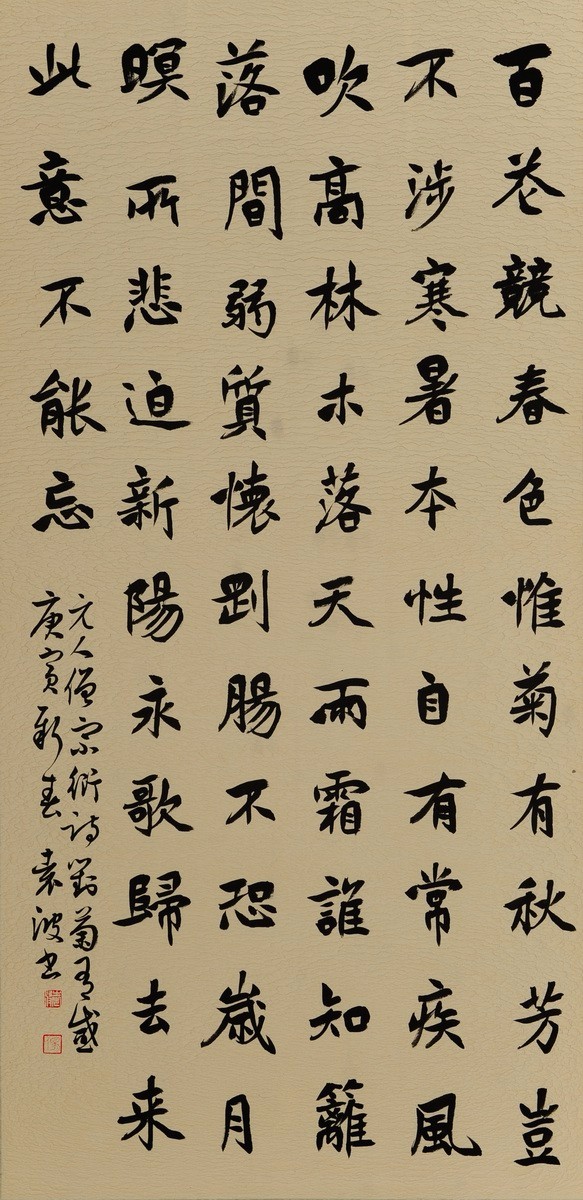 百花競春色惟菊有秋芳豈
不涉寒暑本性自有常疾風
吹高林木落天雨霜誰知籬
落間弱質懷剛腸不恐歲月
暝所悲迫新陽永歌歸去来
此意不能忘
元人僧宗衍詩對菊有感
庚寅新春 袁波书